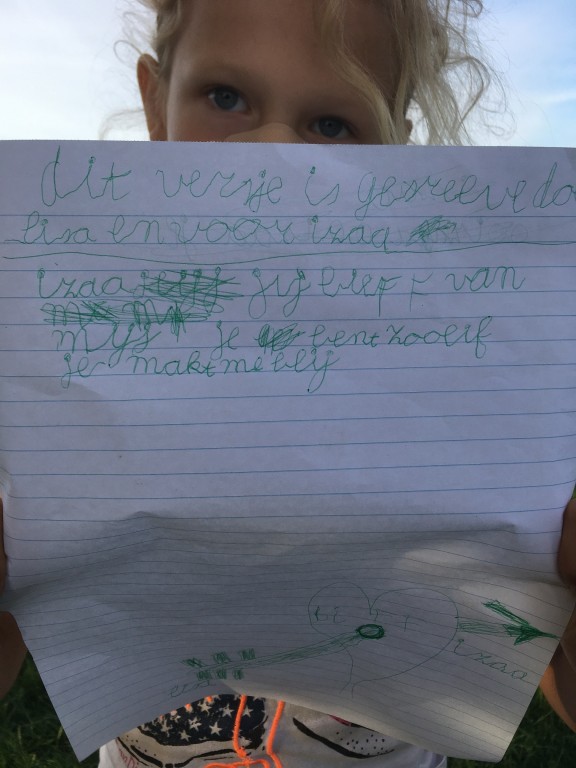 dit versje is gesreeve do
lisa en voor izaa
izaa jij lief van
mijs je bent zoo lif
je makt me blij
izaa